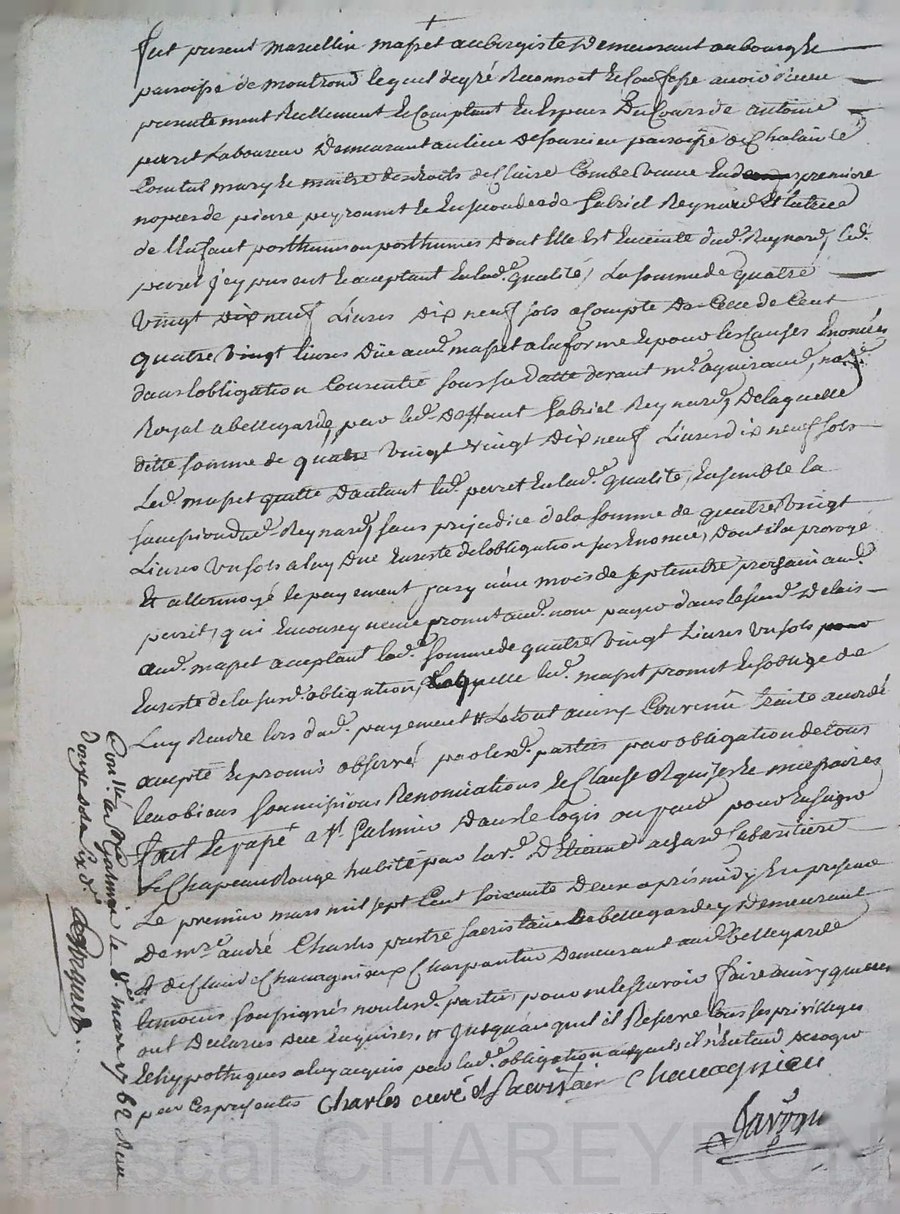 +
fut present marcellin masset aubergiste demeurant au bourg &
paroisse de montrond lequel de gré reconnoit & confesse avoir receu
presentement reellement & comptant en especes du cours de antoine
perret laboureur demeurant au lieu de paroisse de Chalain le
Comtal mary & maitre des droits de Claire Combe veuve en premiere
nopces de pierre peyronnet & en secondes de Gabriel Reynard Et tutrice
de l'enfant posthume ou posthumes dont Elle est Enceinte dud. Reynard, led.
perret icy present & acceptant en lad.e qualité, La somme de quatre
vingt dix neuf Livres dix neuf sols a compte de Celle de Cent
quatre vingt livres düe aud. masset a la forme & pour les causes Enoncées
dans l'obligation Consentie sous sa datte devant m.e aguiraud, no.re
Royal a bellegarde, par led. deffunt Gabriel Reynard, De laquelle
ditte somme de quatre vingt dix neuf Livres dix neuf sols
Led. masset quitte d'autant led. perret en lad.e qualité, Ensemble la
succession dud. Reynard, sans prejudice de la somme de quatre vingt
Livres un sols a luy Düe En reste de l'obligation sus Enoncée, Dont il a prorogé
Et attermoyé le payement jusqu'au mois de septembre prochain aud.
perret, qui en son & meme promet aud. nom payer dans le susd. delais
aud. masset acceptant lad.e somme de quatre vingt Livres un sols
En reste de la susd.e obligation, Laquelle led. masset promet & s'oblige de
Luy Rendre lors dud. payement # Le tout ainsy Convenû traité accordé
accepté & promis observé par lesd. parties par obligation de tous
leurs biens soumissions Renonciations & Clauses Requises & necessaires
fait & passé a St. Galmier dans le logis ou pend pour Enseigne
Le Chapeau Rouge habité par la v.e d'Etienne achard Cabaretiere
Le premier mars mil sept Cent soixante Deux apres midy, En presence
De m.re andré Charles pretre sacristain de bellegarde y demeurant
& de Claude Chavagnieux Charpentier Demeurant aud. bellegarde
temoins soussignés non lesd. parties, pour ne le scavoir faire ainsy qu'elles
ont Declarés de ce Enquises, # jusqu'auquel il Reserve tous ses privileges
& hypotheques a luy acquis par lad.e obligation auxquels il n'entend deroger
par ces presentes Charles curé & Sacristain Chavagnieu
Javon
Con.llé a St Galmier le 8.e mars 1762 Receu
douze sols six d.